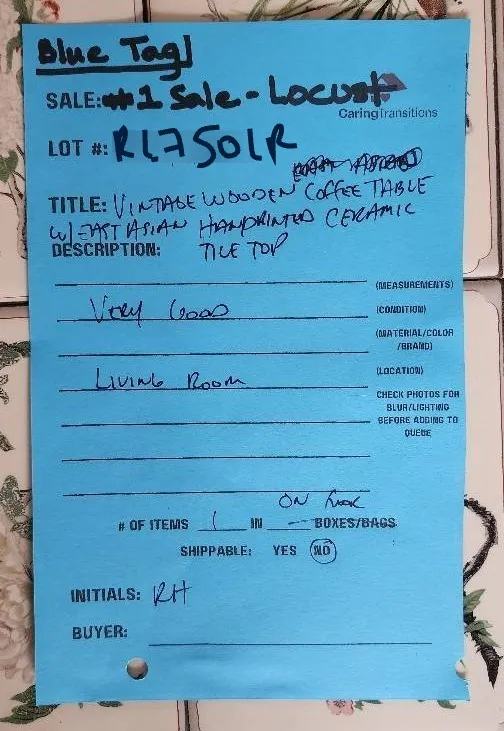 Blue Tag!
SALE: #1 Sale - Locust
CaringTransitions
LOT #: RL7501R
TITLE: VINTAGE WOODEN COFFEE TABLE
W/ EAST ASIAN HANDPRINTED CERAMIC
DESCRIPTION: TILE TOP
(MEASUREMENTS)
VERY GOOD (CONDITION)
(MATERIAL/COLOR
/BRAND)
LIVING ROOM (LOCATION)
CHECK PHOTOS FOR
BLUR/LIGHTING
BEFORE ADDING TO
QUEUE
ON FLOOR
# OF ITEMS 1 IN - BOXES/BAGS
SHIPPABLE: YES NO
INITIALS: RH
BUYER: